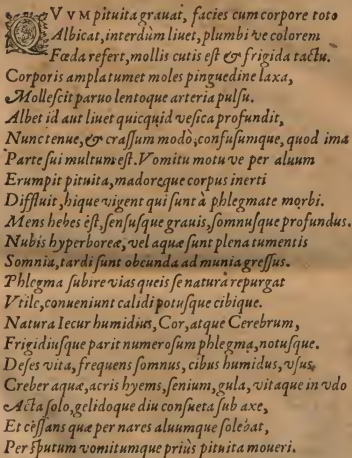 QVVM pituita grauat, facies cum corpore toto
Albicat, interdùm liuet, plumbi ve colorem
Fœda refert, mollis cutis est & frigida tactu.
Corporis amplatumet moles pinguedine laxa,
Mollescit paruo lentoque arteria pulsu.
Albet id aut liuet quicquid vesica profundit,
Nunc tenue, & crassum modò, confusumque, quod ima
Parte sui multum est. Vomitu motu ve per aluum
Erumpit pituita, madoreque corpus inerti
Diffluit, hique vigent qui sunt à phlegmate morbi.
Mens hebes est, sensusque grauis, somnusque profundus.
Nubis hyperboreæ, vel aquæ sunt plena tumentis
Somnia, tardi sunt obeunda ad munia gressus.
Phlegma subire vias queis se natura repurgat
Vtile, conueniunt calidi potusque cibique.
Natura Iecur humidius, Cor, atque Cerebrum,
Frigidiusque parit numerosum phlegma, notusque.
Deses vita, frequens somnus, cibus humidus, vsus
Creber aquæ, acris hyems, senium, gula, vitaque in vdo
Acta solo, gelidoque diu consueta sub axe,
Et cessans quæ per nares aluumque solebat,
Per sputum vomitumque priùs pituita moueri.